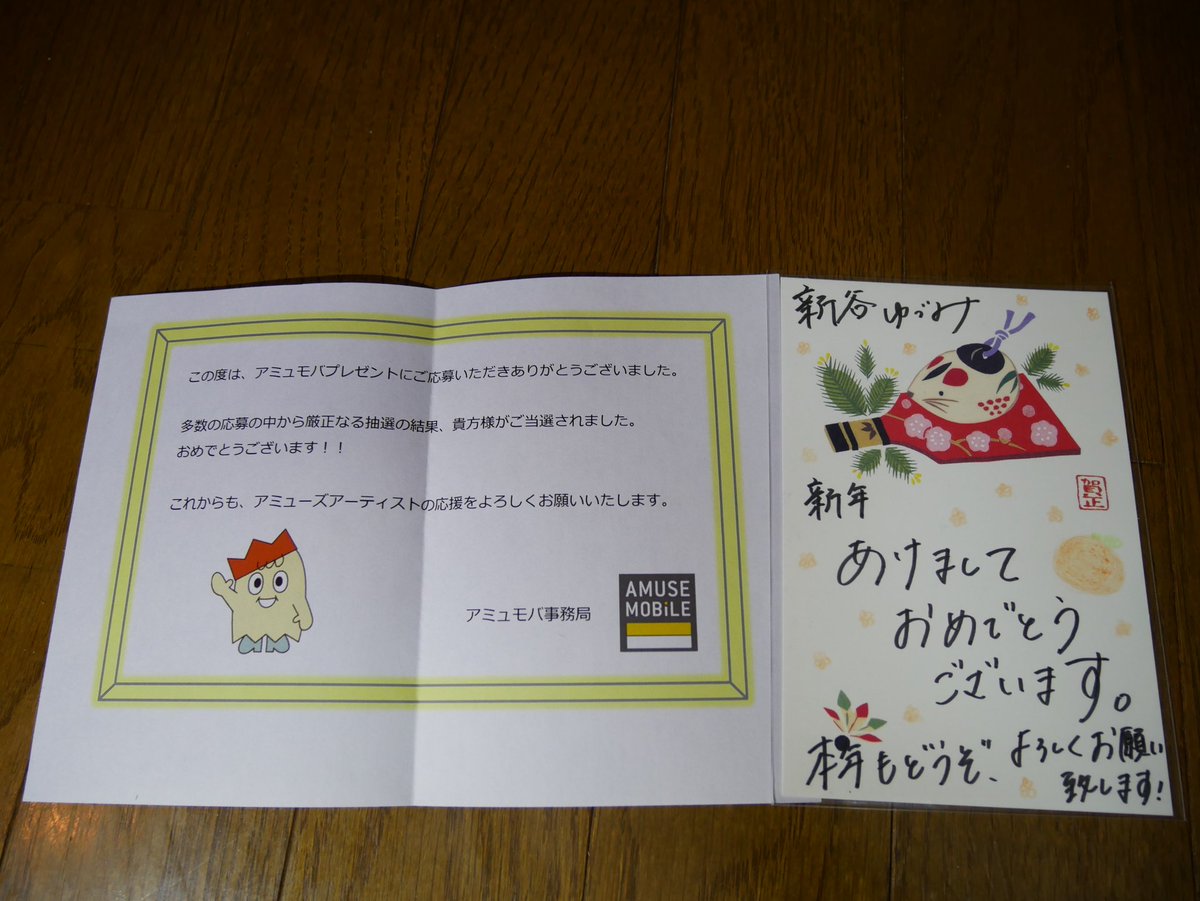 この度は、アミュモバプレゼントにご応募いただきありがとうございました。
多数の応募の中から厳正なる抽選の結果、貴方様がご当選されました。
おめでとうございます！！
これからも、アミューズアーティストの応援をよろしくお願いいたします。
アミュモバ事務局
AMUSE
MOBiLE
新谷ゆづみ
賀正
新年
あけまして
おめでとう
ございます。
本年もどうぞ、よろしくお願い
致します!